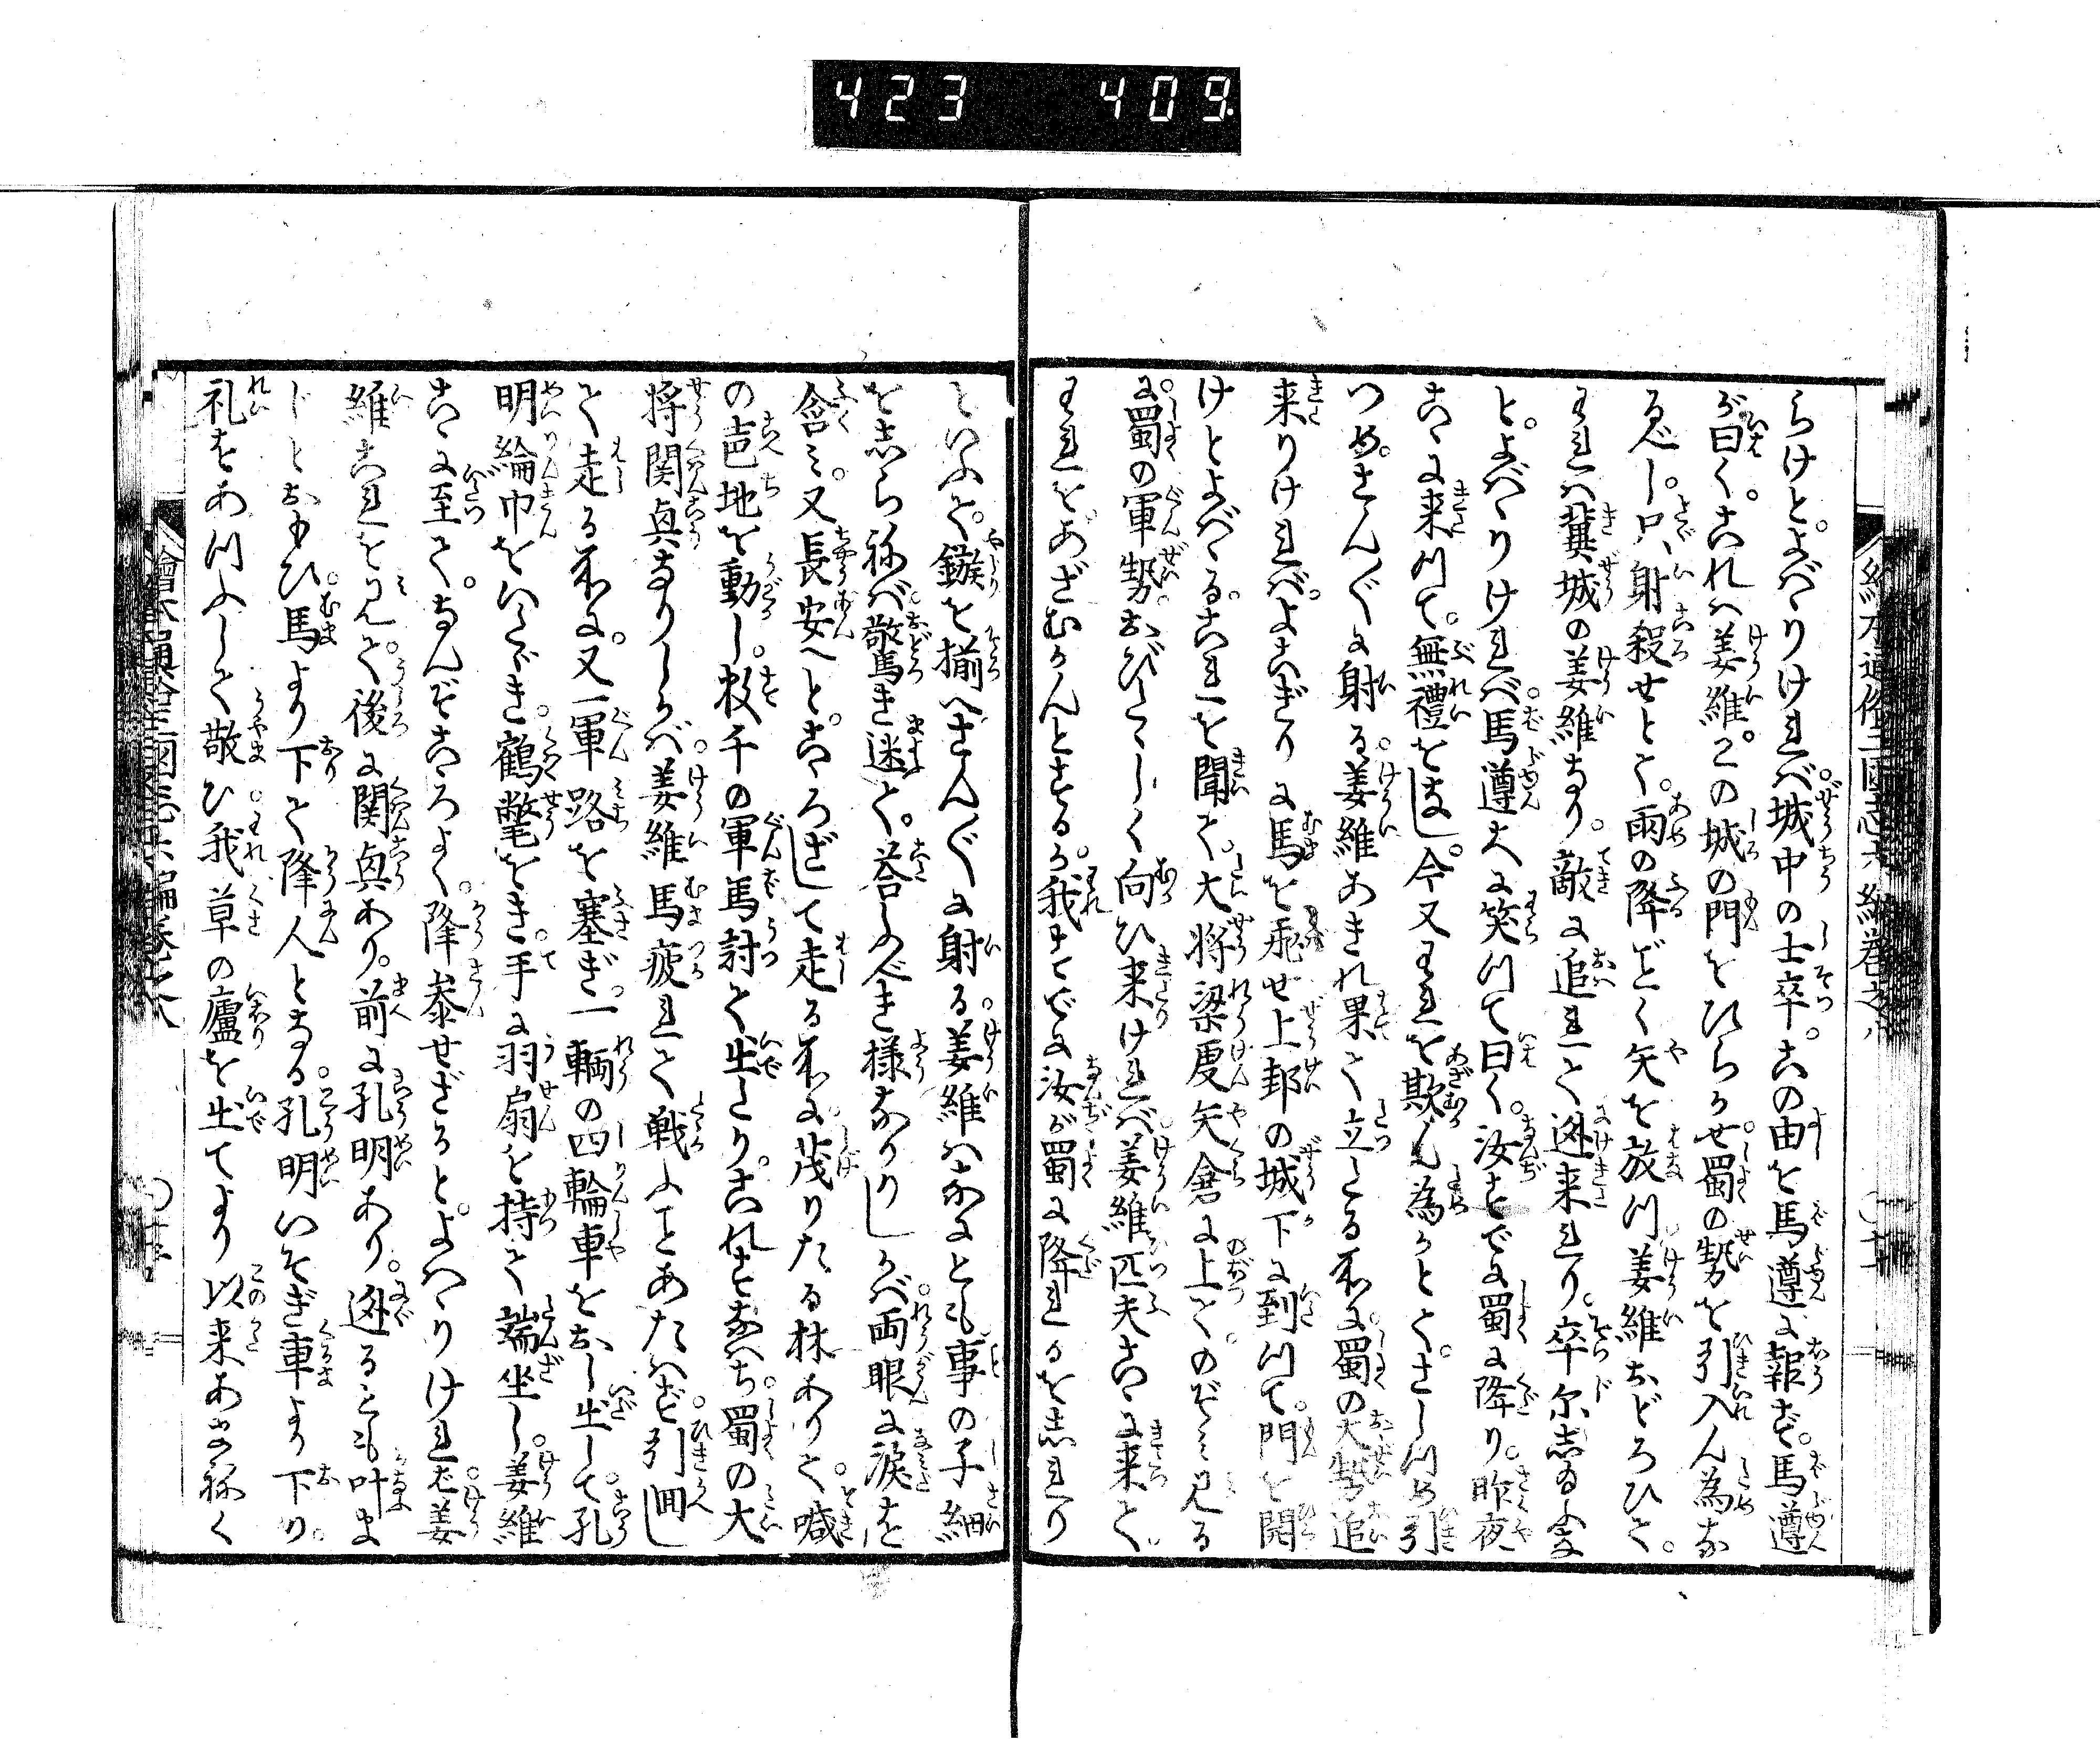 423 409
らけとよばゝりければ城中の士卒この由を馬遵に報ず馬遵
が曰くこれは姜維この城の門をひらかせ蜀の勢を引入ん為な
るべし只射殺せとて雨の降ごとく矢を放つ姜維おどろひて
われは冀城の姜維なり敵に追れて迯来れり卒尓志給ふな
とよばゝりければ馬遵大に笑つて曰く汝すでに蜀に降り昨夜
こゝに来つて無禮をなし今又われを欺ん為かとてさしつめ引
つめさんぐに射る姜維あきれ果て立たる所に蜀の大勢追
来りければよこぎりに馬を飛せ上邽の城下に到つて門を開
けとよばゝるこれを聞て大将梁虔矢倉に上てのぞみ見る
に蜀の軍勢おびたゝしく向ひ来ければ姜維匹夫こゝに来て
われをあざむかんとするか我すでに汝が蜀に降れるを志れり
といふて鏃を揃へさんぐに射る姜維はなにとも事の子細
を志らねば驚き迷て荅ふべき様なかりしかば両眼に涙を
含み又長安へとこゝろざして走る所に茂りたる林ありて喊
の声地を動し数千の軍馬討て出たりこれすなはち蜀の大
将関興なりしかば姜維馬疲れて戦ふことあたはず引回し
て走る所に又一軍路を塞ぎ一輌の四輪車をおし出して孔
明綸巾をいたゞき鶴氅をき手に羽扇を持て端坐し姜維
こゝに至てなんぞこゝろよく降参せざるとよばゝりければ姜
維これを見て後に関興あり前に孔明あり迯るとも叶ま
じとおもひ馬より下て降人となる孔明いそぎ車より下り
礼をあつふして敬ひ我草の廬を出てより以来あまねく
繪本通俗三國志六編巻之八
繪本通俗三國志六編巻之八